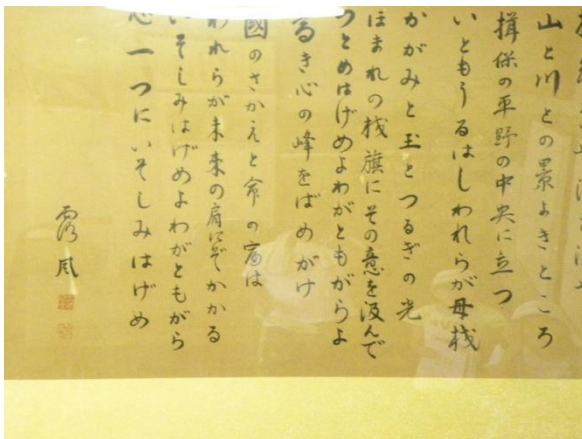 山と川との景よきところ
揖保の平野の中央に立つ
いともうるはしわれらが母校
かがみと玉とつるぎの光
ほまれの校旗にその意を汲んで
つとめはげめよわがともがらよ
き心の峰をばめがけ
國のさかえと命の富は
われらが未来の肩にぞかかる
いそしみはげめよわがともがら
心一つにいそしみはげめ
露風